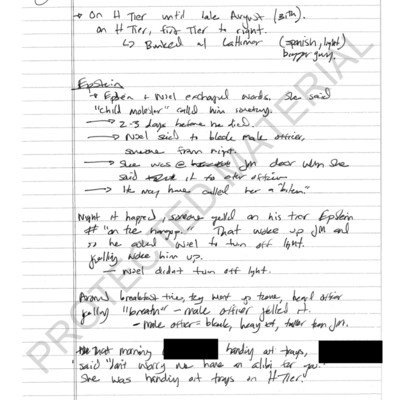 → On H Tier until late August (30th).
on H Tier, first Tier to right.
↳ Bunked w/ Lattimer (spanish, light)
bigger guy.
Epstein
→ Epstein + Noel exchanged words. She said
"child molester" called him something.
→ 2-3 days before he died.
→ Noel said to black male officer,
someone from night.
→ She was @ JM door when she
said it to other officer
→ He may have called her a "bitch."
Night it happened, someone yelled on his tier Epstein
"on the hangup." That woke up JM and
he asked Noel to turn off light.
yelling woke him up.
- Noel didn't turn off light.
Around breakfast time, they went up there, heard officer
yelling "breath" - male officer yelled it.
- male officer = black, heavy set, taller than JM.
that morning handing out trays,
said "don't worry we have an alibi for you."
She was handing out trays on H Tier.
PROTECTED MATERIAL